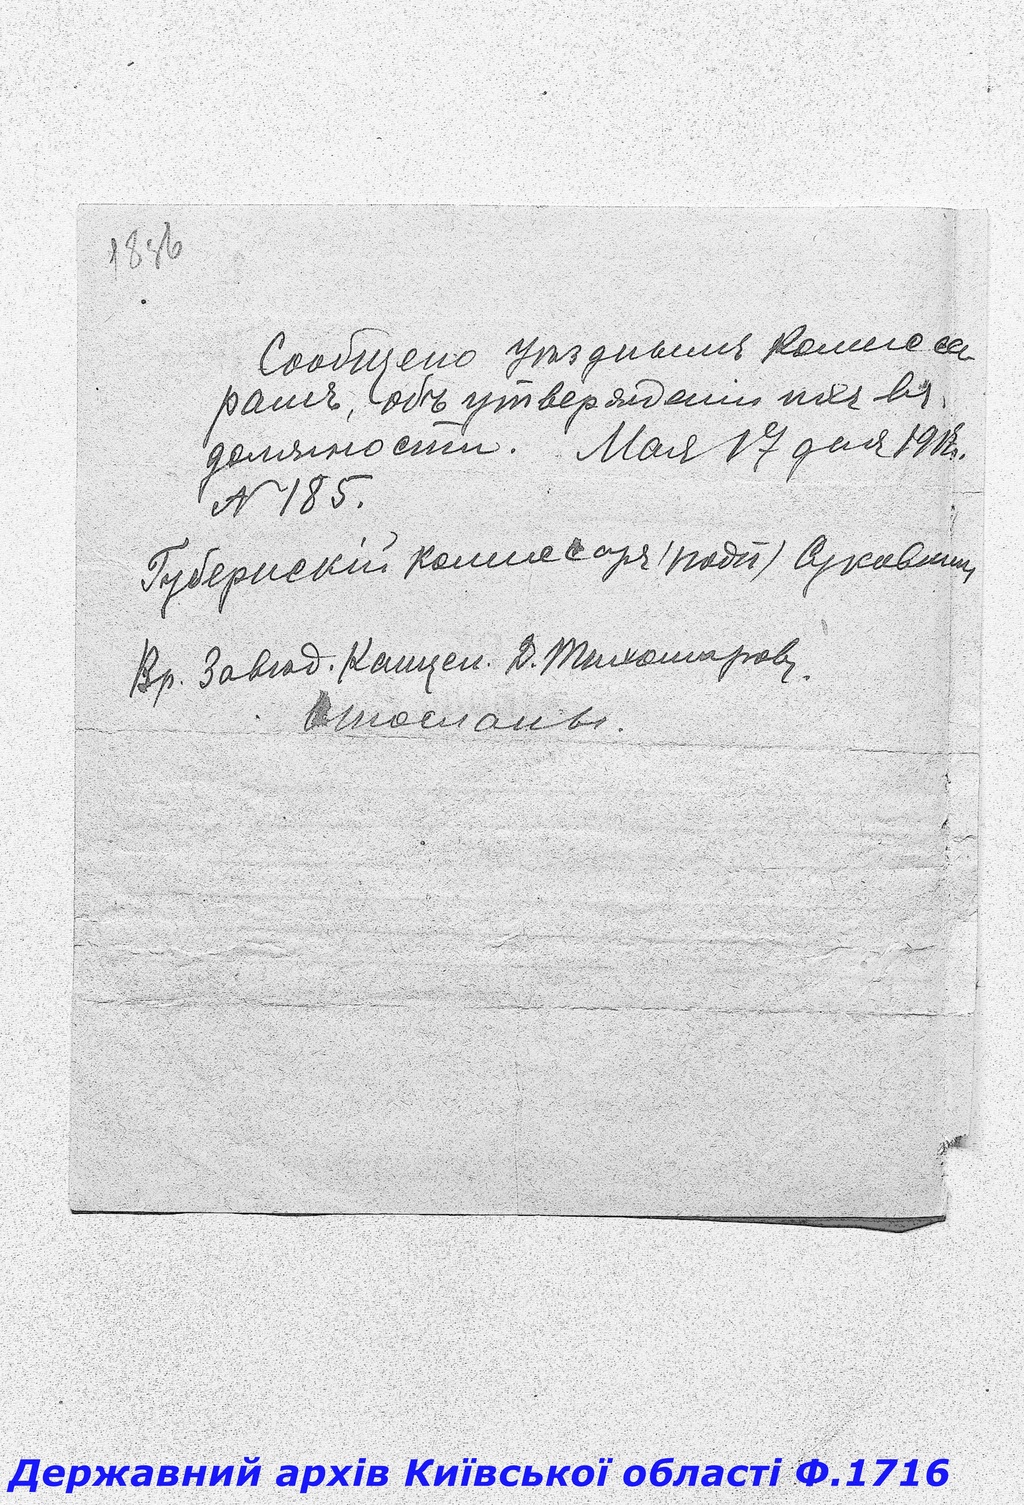 188б
Сообщено Уѣзднымъ Комисса-
рамъ, объ утвержденiи ихъ въ
должности. Мая 17 дня 1917г.
№ 185.
Губернскій комиссаръ (подп) Суковкинъ
Вр. Завѣд. Канцел. Д. Тихомировъ.
Отосланы.
Державний архів Київської області Ф.1716